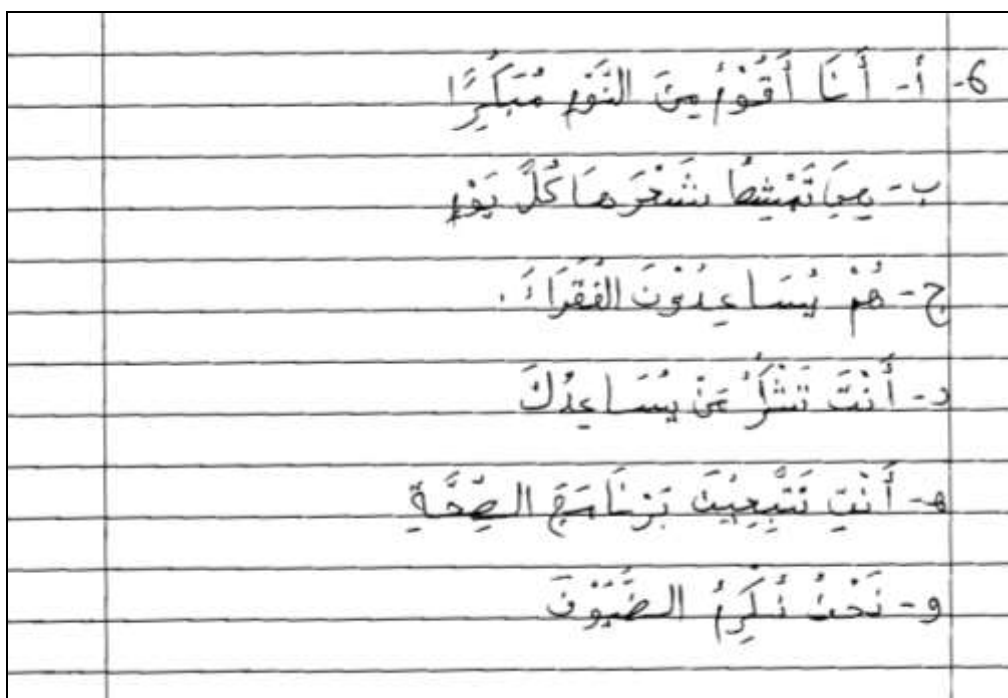 6- أ- أَنَا أَقُوْمُ مِنَ النَّوْمِ مُبَكِّرًا
ب- هِيَ تَمْشِطُ شَعْرَهَا كُلَّ يَوْمٍ
ج- هُمْ يُسَاعِدُوْنَ الفُقَرَاءَ.
د- أَنْتَ مَنْ يُسَاعِدُكَ
ه- أَنْتِ تَتَّبِعِيْنَ بَرْنَامَجَ الصِّحَّةِ
و- نَحْنُ نُكْرِمُ الضُّيُوْفَ